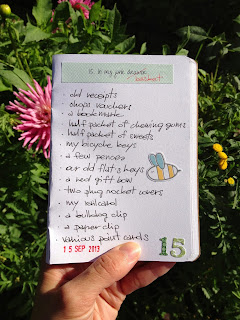 15. In my pink drawer
basket
· old receipts
· shops vouchers
· a bookmark
· half packet of chewing gums
· half packet of sweets
· my bicycle keys
· a few pences
· our old flat's keys
· a red gift bow
· two plug socket covers
· my railcard
· a bulldog clip
· a paper clip
· various point cards
15 SEP 2013
15